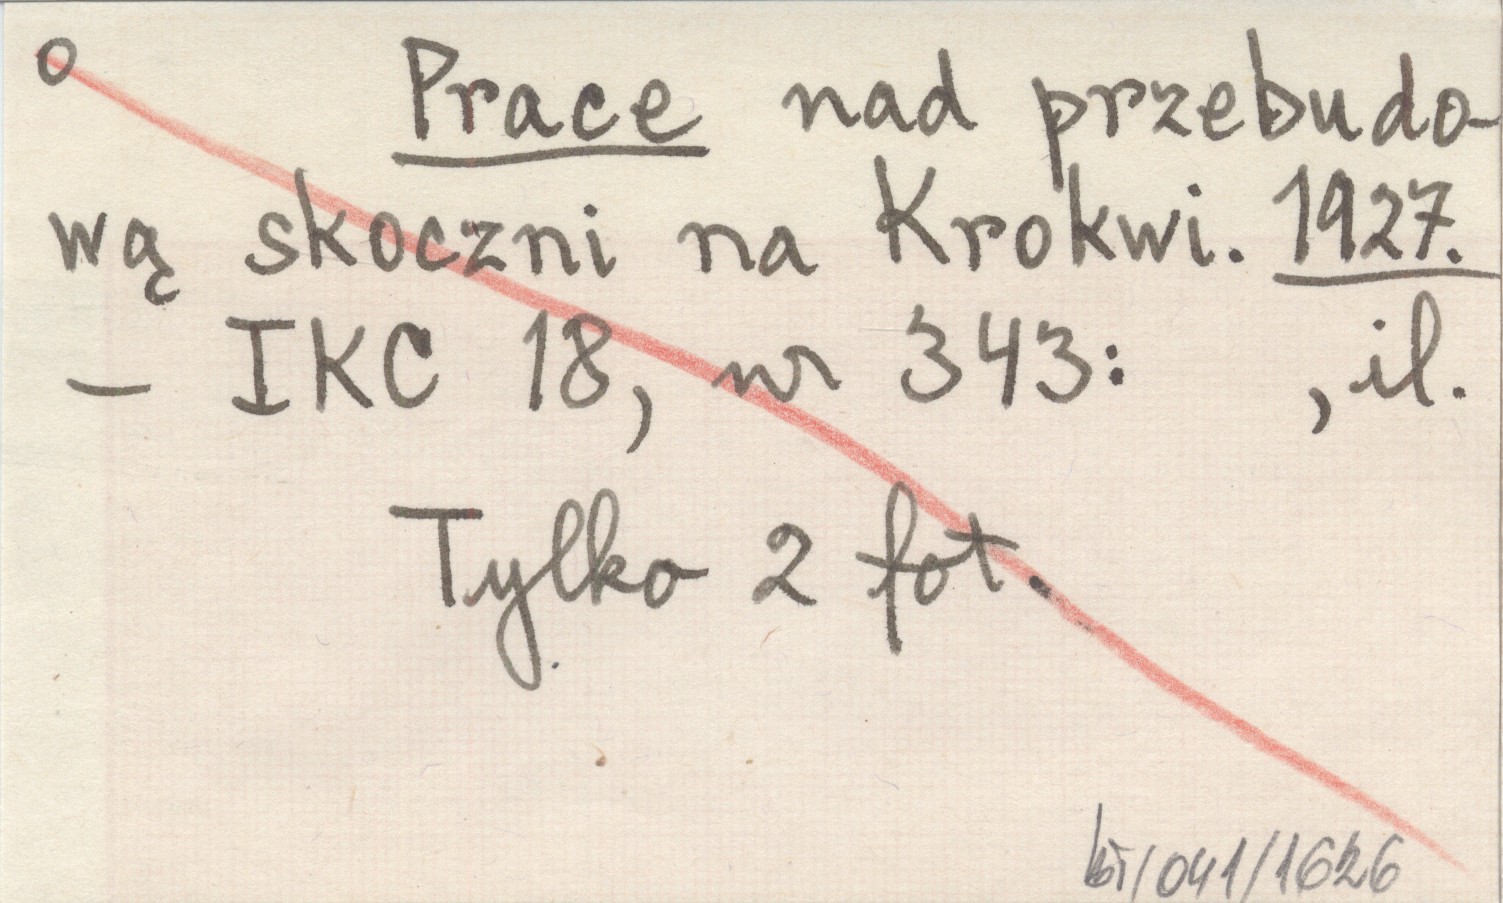 o Prace nad przebudo-
wą skoczni na Krokwi. 1927.
– IKC 18, nr 343: , il.
Tylko 2 fot.
/041/1626